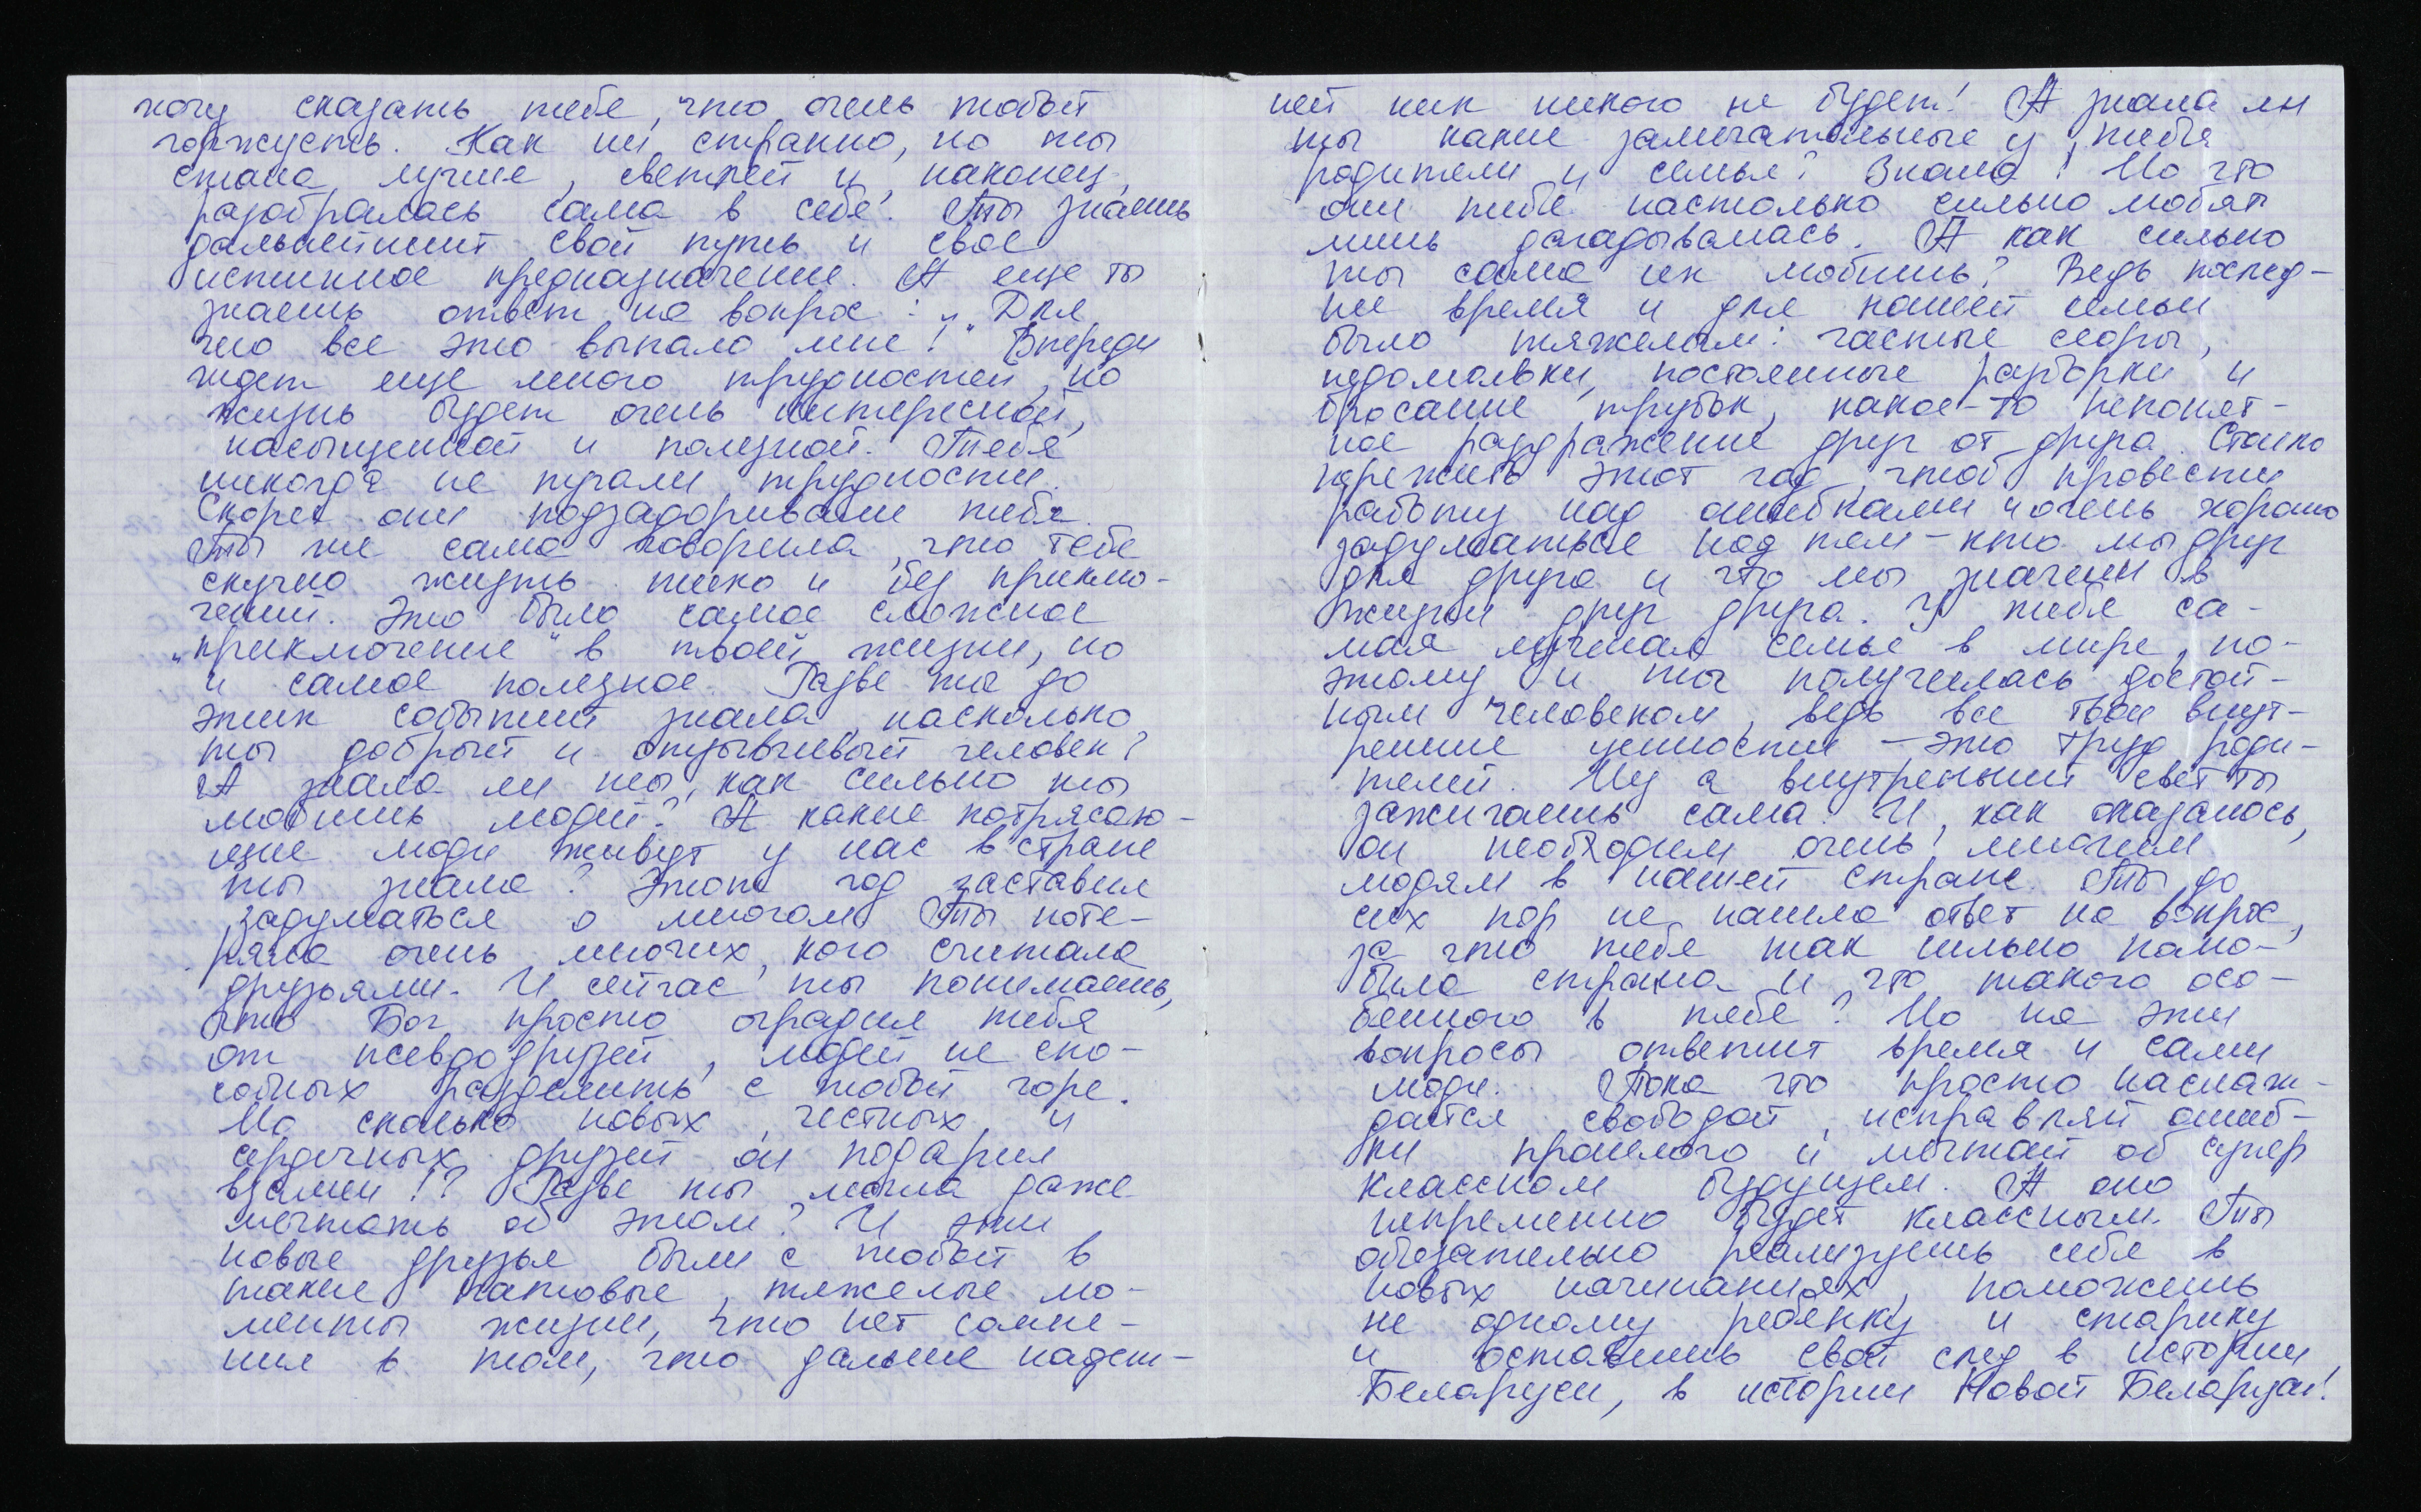 хочу сказать тебе, что очень тобой
горжусь. Как ни странно, но ты
стала лучше, светлей и, наконец,
разобралась сама в себе. Ты знаешь
дальнейший свой путь и свое
истинное предназначение. А еще ты
знаешь ответ на вопрос: „Для
чего все это выпало мне!" Впереди
ждет еще много трудностей, но
жизнь будет очень интересной,
насыщенной и полезной. Тебя
никогда не пугали трудности.
Скорее они подзадоривали тебя.
Ты же сама говорила, что тебе
скучно жить тихо и без приклю-
чений. Это было самое сложное
„приключение" в твоей жизни, но
и самое полезное. Разве ты до
этих событий знала, насколько
ты добрый и отзывчивый человек?
А знала ли ты, как сильно ты
любишь людей? А какие потрясаю-
щие люди живут у нас в стране
ты знала? Этот год заставил
задуматься о многом. Ты поте-
ряла очень многих, кого считала
друзьями. И сейчас ты понимаешь,
что Бог просто оградил тебя
от псевдодрузей, людей не спо-
собных разделить с тобой горе.
Но сколько новых, честных и
сердечных друзей он подарил
взамен!? Разве ты могла даже
мечтать об этом? И эти
новые друзья были с тобой в
такие патовые, тяжелые мо-
менты жизни, что нет сомне-
ния в том, что дальше надеж-
ней чем никого не будет! А знала ли
ты какие замечательные у тебя
родители и семья? Знала! Но что
они тебя настолько сильно любят
лишь догадывалась. А как сильно
ты сама их любишь? Ведь послед-
нее время и для нашей семьи
было тяжелым: частые ссоры,
недомолвки, постоянные разборки и
бросание трубок, какое-то непонят-
ное раздражение друг от друга. Стоило
пережить этот год, чтоб провести
работу над ошибками и очень хорошо
задуматься над тем - кто мы друг
для друга и что мы значим в
жизни друг друга. У тебя са-
мая лучшая семья в мире, по-
этому и ты получилась достой-
ным человеком, ведь все твои внут-
ренние ценности - это труд роди-
телей. Ну а внутренний свет ты
зажигаешь сама. И, как оказалось,
он необходим очень многим
людям в нашей стране. Ты до
сих пор не нашла ответ на вопрос,
за что тебя так сильно полю-
била страна и что такого осо-
бенного в тебе? Но на эти
вопросы ответит время и сами
люди. Пока что просто наслаж-
дайся свободой, исправляй ошиб-
ки прошлого и мечтай об супер
классном будущем. А оно
непременно будет классным. Ты
обязательно реализуешь себя в
новых начинаниях, поможешь
не одному ребенку и старику
и оставишь свой след в истории
Беларуси, в истории Новой Беларуси!